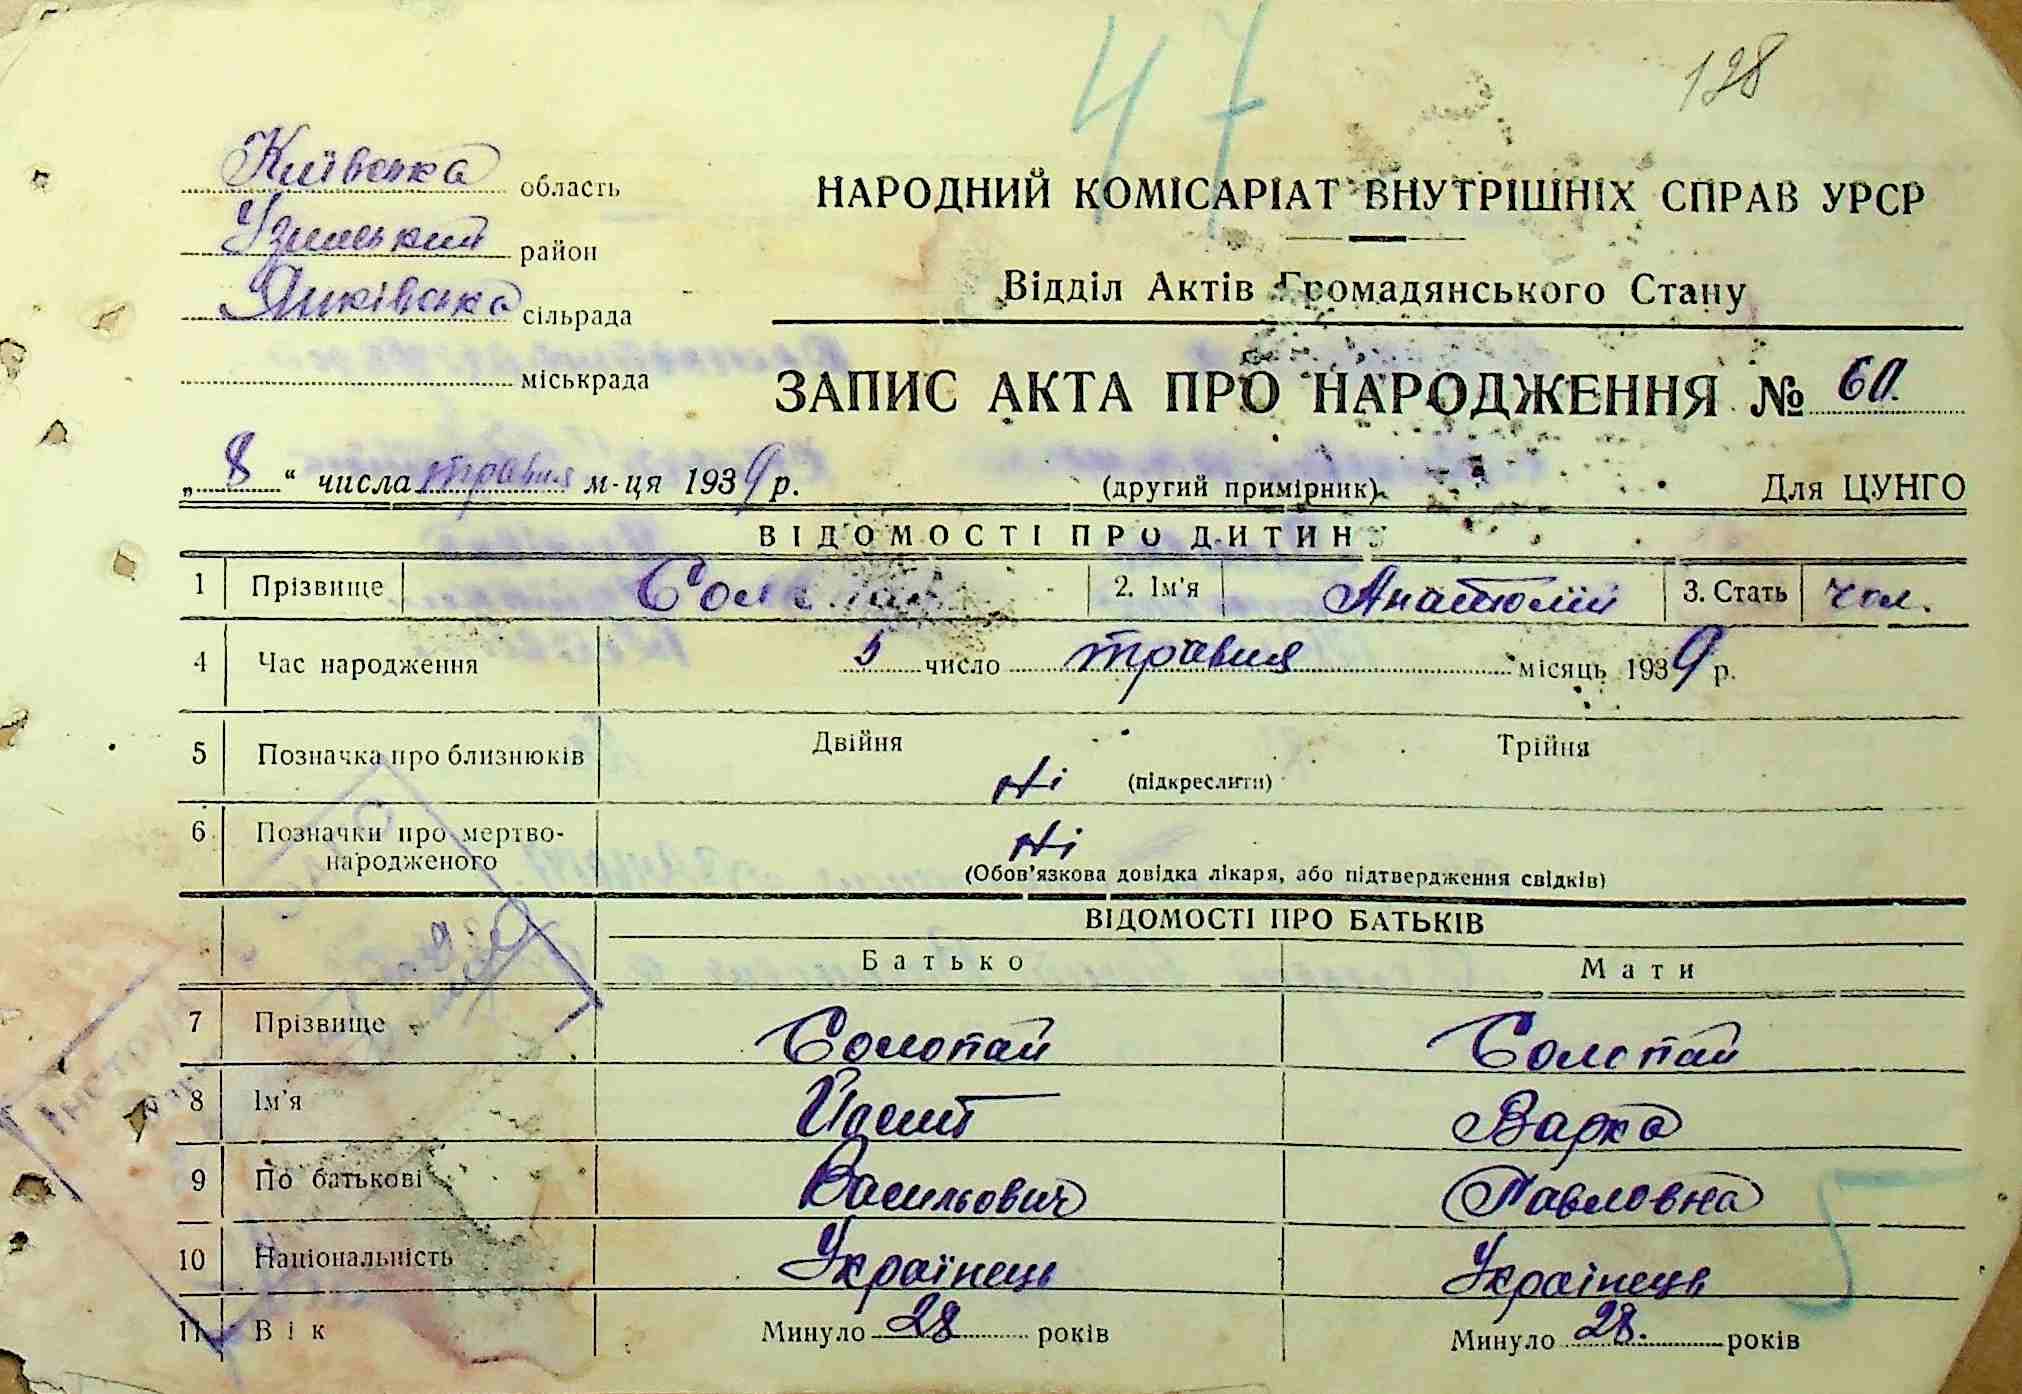 47
128
Київська область
Узинський район
Янківська сільрада
міськрада
НАРОДНИЙ КОМІСАРІАТ ВНУТРІШНІХ СПРАВ УРСР
Відділ Актів Громадянського Стану
ЗАПИС АКТА ПРО НАРОДЖЕННЯ № 60.
„8“ числа травня м-ця 1939 р. (другий примірник). Для ЦУНГО
ВІДОМОСТІ ПРО ДИТИНУ
1 Прізвище 2. Ім'я Анатолій 3. Стать чол.
4 Час народження 5 число травня місяць 1939 р.
5 Позначка про близнюків Двійня Ні (підкреслити) Трійня
6 Позначки про мертво-
народженого Ні
(Обов'язкова довідка лікаря, або підтвердження свідків)
ВІДОМОСТІ ПРО БАТЬКІВ
Батько Мати
7 Прізвище Солопай Солопай
8 Ім'я Йосип Варка
9 По батькові Васильович Павловна
10 Національність Українець Українець
11 Вік Минуло 28 років Минуло 28. років
5